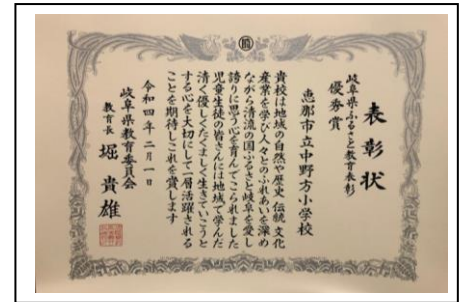 表彰状
岐阜県ふるさと教育表彰
優秀賞
恵那市立中野方小学校
貴校は地域の自然や歴史、伝統、文化
産業を学び人々とのふれあいを深め
ながら清流の国ふるさと岐阜を愛し
誇りに思う心を育んでこられました
児童生徒の皆さんには地域で学んだ
清く優しくたくましく生きていこうと
する心を大切にして一層活躍される
ことを期待しこれを賞します
令和四年二月一日
岐阜県教育委員会
教育長 堀 貴雄